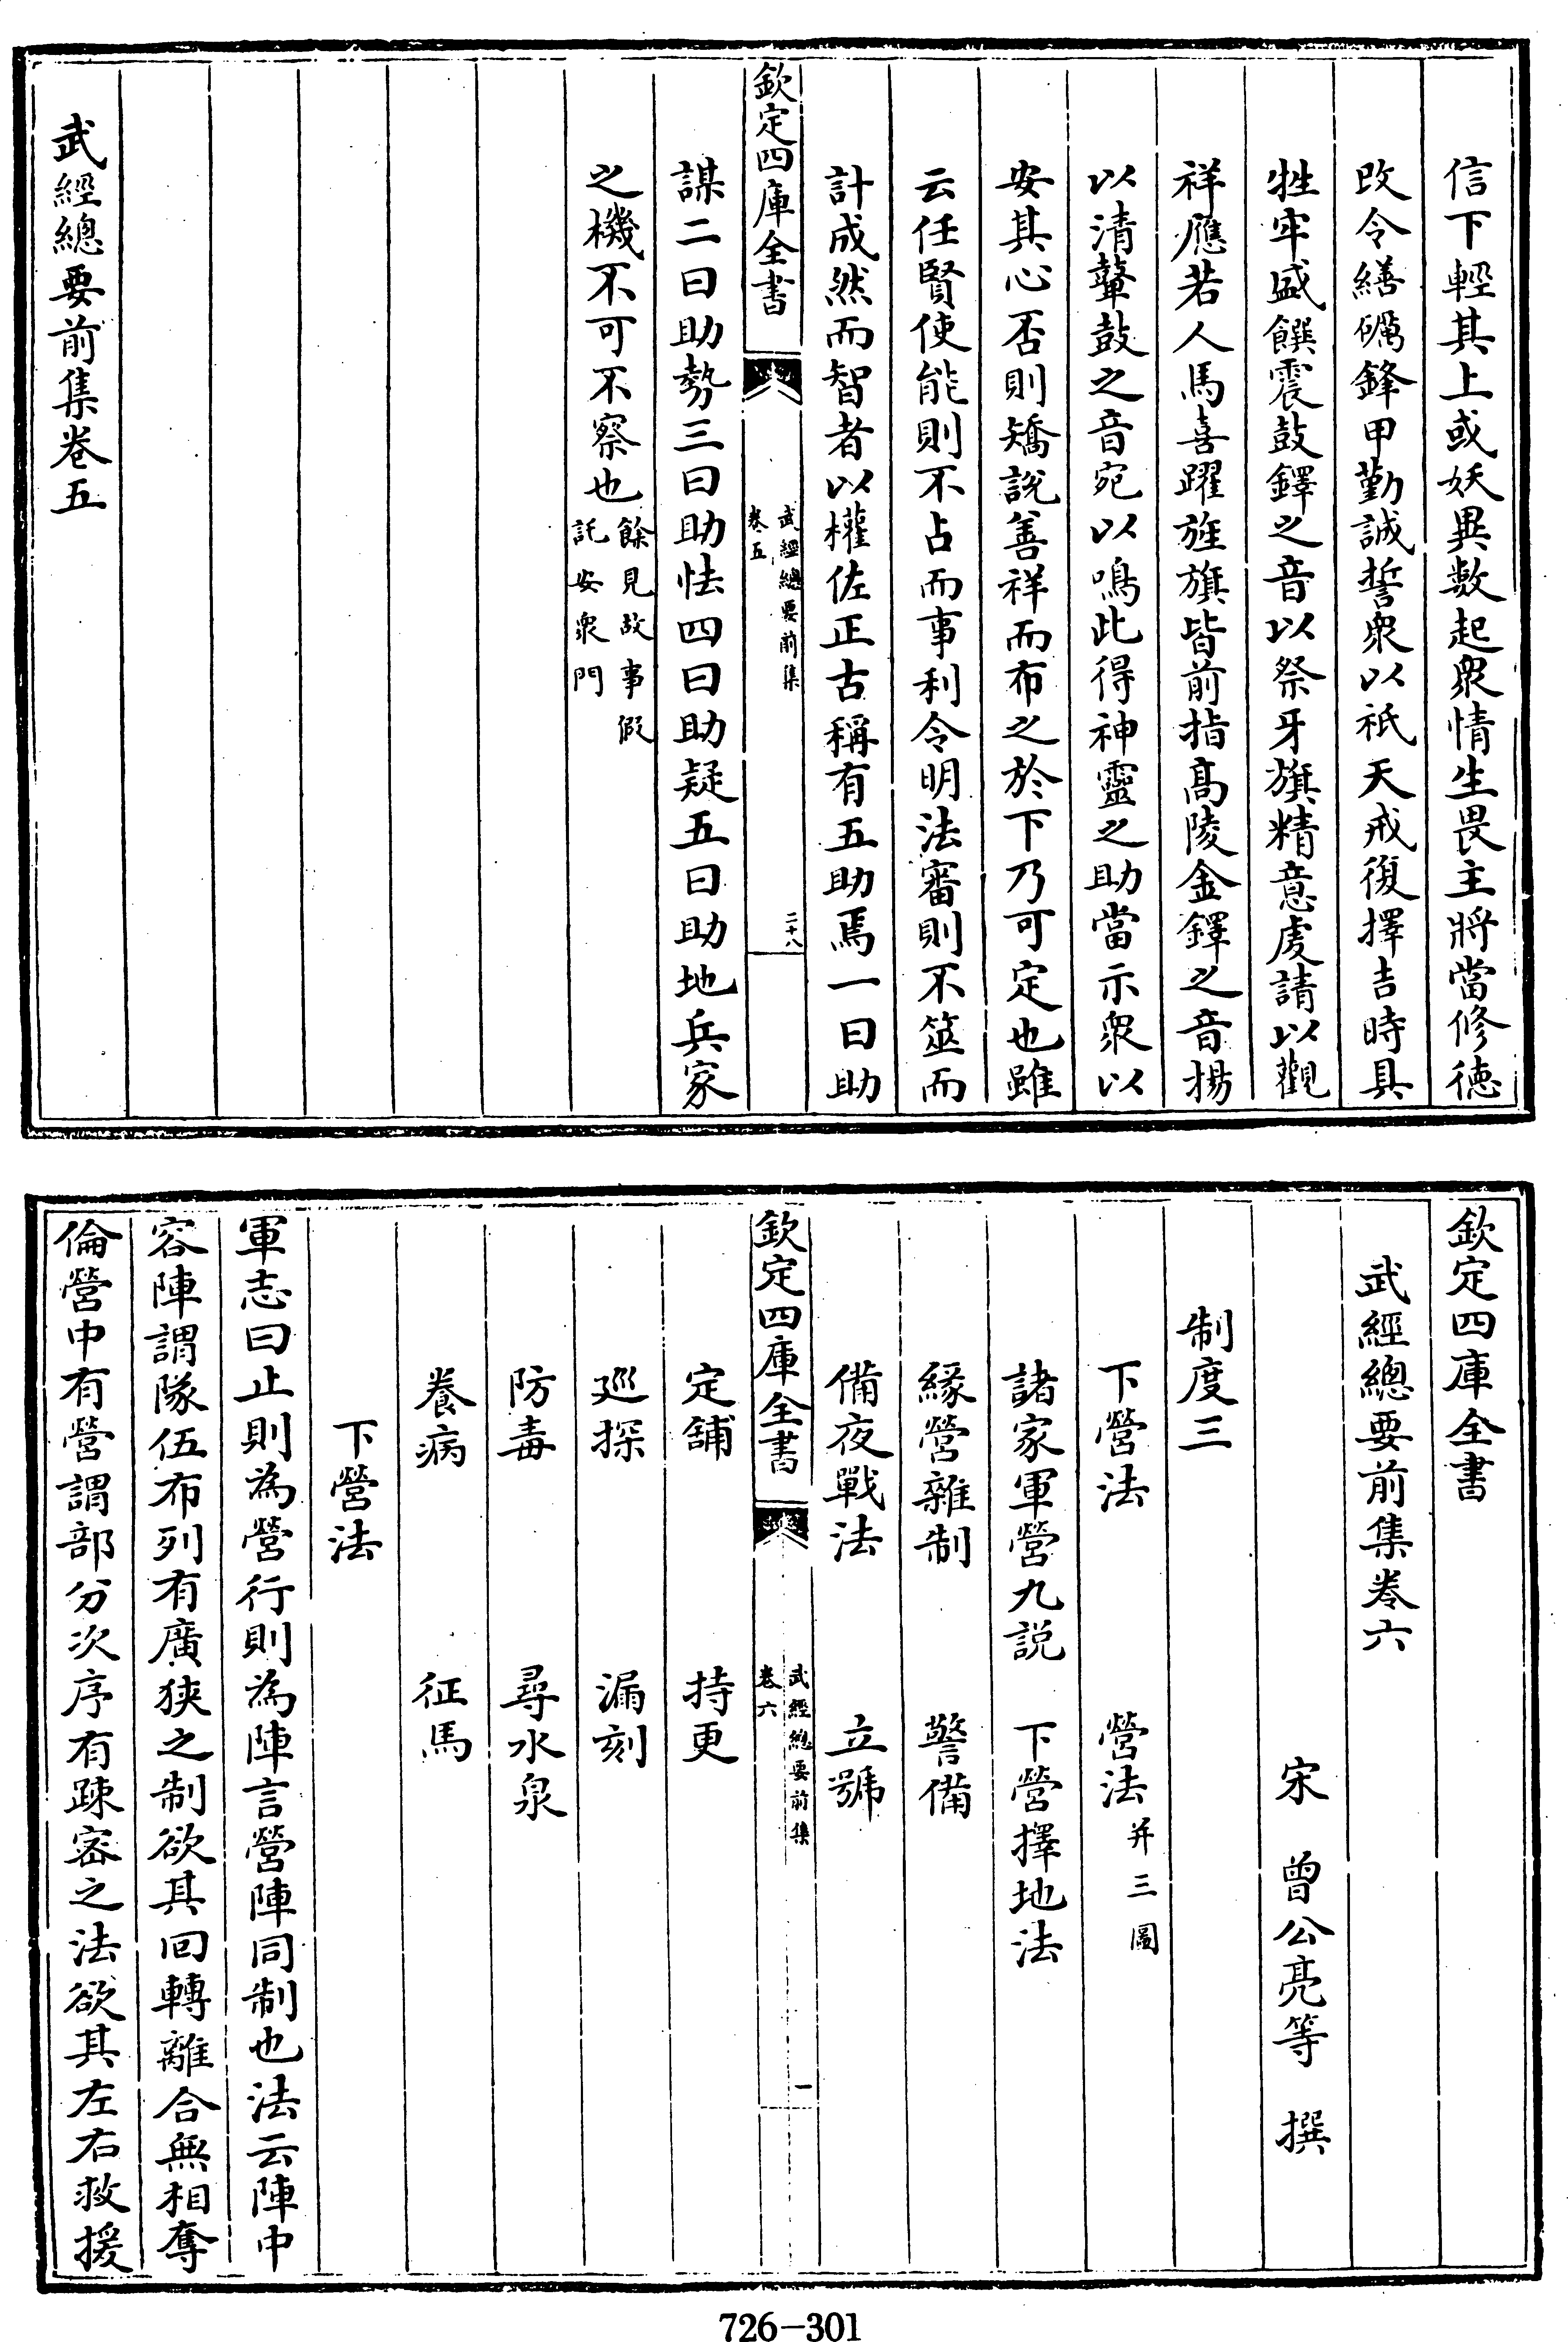 信下輕其上或妖異數起衆情生畏主將當修徳
改令繕礪鋒甲勤誠誓衆以祇天戒復擇吉時具
牲牢盛饌震鼓鐸之音以祭牙旗精意虔請以觀
祥應若人馬喜躍旌旗皆前指高陵金鐸之音揚
以清鼙鼓之音宛以鳴此得神靈之助當示衆以
安其心否則矯説善祥而布之於下乃可定也雖
云任賢使能則不占而事利令明法審則不筮而
計成然而智者以權佐正古稱有五助焉一曰助
欽定四庫全書
武經總要前集
卷五
二十八
謀二曰助勢三曰助怯四曰助疑五曰助地兵家
之機不可不察也餘見故事假
託安衆門
武經總要前集卷五
欽定四庫全書
武經總要前集卷六
宋 曾公亮等 撰
制度三
下營法 營法并三圖
諸家軍營九説 下營擇地法
緣營雜制 警備
備夜戰法 立號
欽定四庫全書
武經總要前集
卷六
一
定舖 持更
巡探 漏刻
防毒 尋水泉
養病 征馬
下營法
軍志曰止則為營行則為陣言營陣同制也法云陣中
容陣謂隊伍布列有廣狹之制欲其回轉離合無相奪
倫營中有營謂部分次序有疎宻之法欲其左右救援
726-301